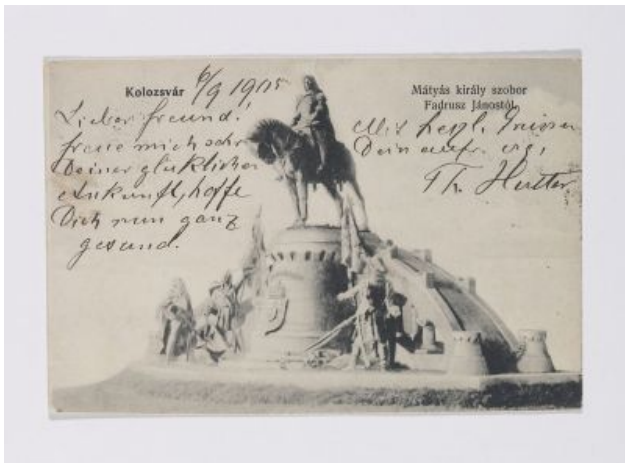 Kolozsvár
6/9 1905
Mátyás király szobor
Fadrusz Jánostól.
Lieber freund!
freue mich sehr
Deiner glüklichen
Ankunft, hoffe
Dich nun ganz
gesund.
Mit herzl. Grüssen
Dein aufr.
Th. Hutter